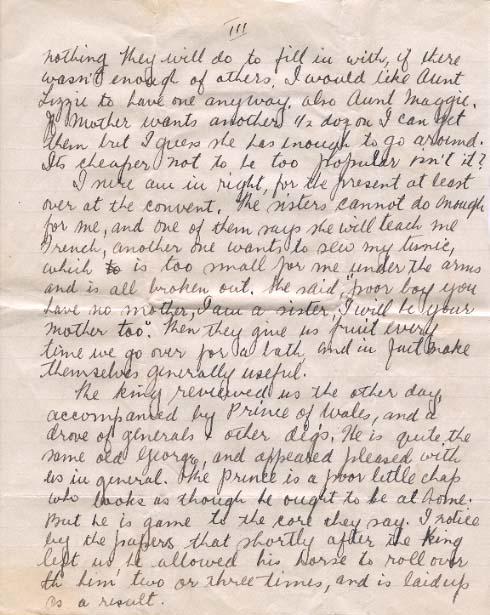 III
nothing they will do to fill in with, if there
wasn't enough of others. I would like Aunt
Lizzie to have one anyway. also Aunt Maggie.
If Mother wants another 1/2 dozen I can get
them but I guess she has enough to go around.
Its cheaper not to be too popular isn't it?
I sure am in right, for the present at least
over at the convent. The sisters cannot do enough
for me, and one of them says she will teach me
French, another one wants to sew my tunic,
which is too small for me under the arms
and is all broken out. She said, "poor boy you
have no mother, I am a sister, I will be your
mother too". Then they give us fruit every
time we go over for a bath and in fact make
themselves generally useful.
The king reviewed us the other day,
accompanied by Prince of Wales, and a
drove of generals & other digs. He is quite the
same old George, and appeared pleased with
us in general. The Prince is a poor little chap
who looks as though he ought to be at home.
But he is game to the core they say. I notice
by the papers that shortly after the King
left us, he allowed his horse to roll over
him two or three times, and is laid up
as a result.